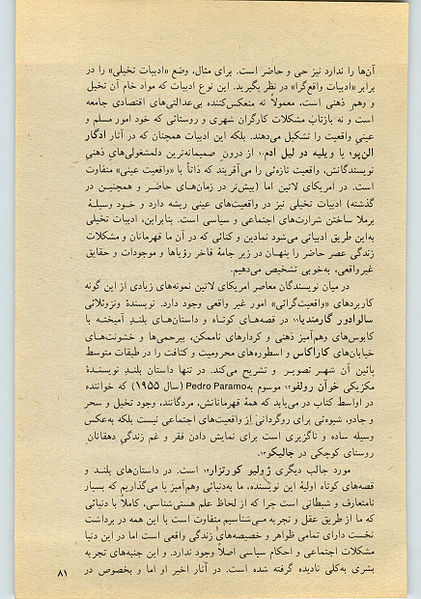 آن‌ها را ندارد نیز حی و حاضر است. برای مثال، وضع «ادبیات تخیلی» را در
برابر «ادبیات واقع‌گرا» در نظر بگیرید. این نوع ادبیات که مواد خام آن تخیل
و وهم ذهنی است، معمولاً نه منعکس‌کننده بی‌عدالتی‌های اقتصادی جامعه
است و نه بازتاب مشکلات کارگران شهری و روستائی که خود امور مسلم و
عینی واقعیت را تشکیل می‌دهند. بلکه این ادبیات همچنان که در آثار ادگار
آلن‌پو، یا ویلیه دو لیل آدم۱۰ از درون صمیمانه‌ترین دلمشغولی‌های ذهنی
نویسندگانش، واقعیت تازه‌ئی را می‌آفریند که ذاتاً با «واقعیت عینی» متفاوت
است. در امریکای لاتین اما (بیش‌تر در زمان‌های حاضر و همچنین در
گذشته) ادبیات تخیلی نیز در واقعیت‌های عینی ریشه دارد و خود وسیلهٔ
برملا ساختن شرارت‌های اجتماعی و سیاسی است. بنابراین، ادبیات تخیلی
به‌این طریق ادبیاتی می‌شود نمادین و کنائی که در آن ما قهرمانان و مشکلات
زندگی عصر حاضر را پنهان در زیر جامهٔ فاخر رؤیاها و موجودات و حقایق
غیرواقعی، به‌خوبی تشخیص می‌دهیم.
در میان نویسندگان معاصر امریکای لاتین نمونه‌های زیادی از این گونه
کاربردهای «واقعیت‌گرائی» امور غیر واقعی وجود دارد. نویسندهٔ ونزوئلائی
سالوادور گارمندیا۱۱ در قصه‌های کوتاه و داستان‌های بلند آمیخته با
کابوس‌های وهم‌آمیز ذهنی و کردارهای ناممکن، بیرحمی‌ها و خشونت‌های
خیابان‌های کاراکاس و اسطوره‌های محرومیت و کثافت را در طبقات متوسط
پائین آن شهر تصویر و تشریح می‌کند. در تنها داستان بلند نویسندهٔ
مکزیکی خوآن رولفو۱۲ موسوم به Pedro Paramo (سال ۱۹۵۵) که خواننده
در اواسط کتاب در می‌یابد که همهٔ قهرمانانش، مرده‌گانند، وجود تخیل و سحر
و جادو، شیوه‌ئی برای روگردانی از واقعیت‌های اجتماعی نیست بلکه به‌عکس
وسیله ساده و ناگزیری است برای نمایش دادن فقر و غم زندگی دهقانان
روستای کوچکی در جالیکو۱۳.
مورد جالب دیگری ژولیو کورتزار۱۴ است. در داستان‌های بلند و
قصه‌های کوتاه اولیهٔ این نویسنده، ما به‌دنیائی وهم‌آمیز پا می‌گذاریم که بسیار
نامتعارف و شیطانی است چرا که از لحاظ علم هستی‌شناسی، کاملاً با دنیائی
که ما از طریق عقل و تجربه می‌شناسیم متفاوت است با این همه در برداشت
نخست دارای تمامی ظواهر و خصیصه‌های زندگی واقعی است اما در این دنیا
مشکلات اجتماعی و احکام سیاسی اصلاً وجود ندارد. و این جنبه‌های تجربه
بشری به‌کلی نادیده گرفته شده است. در آثار اخیر او اما و بخصوص در
۸۱